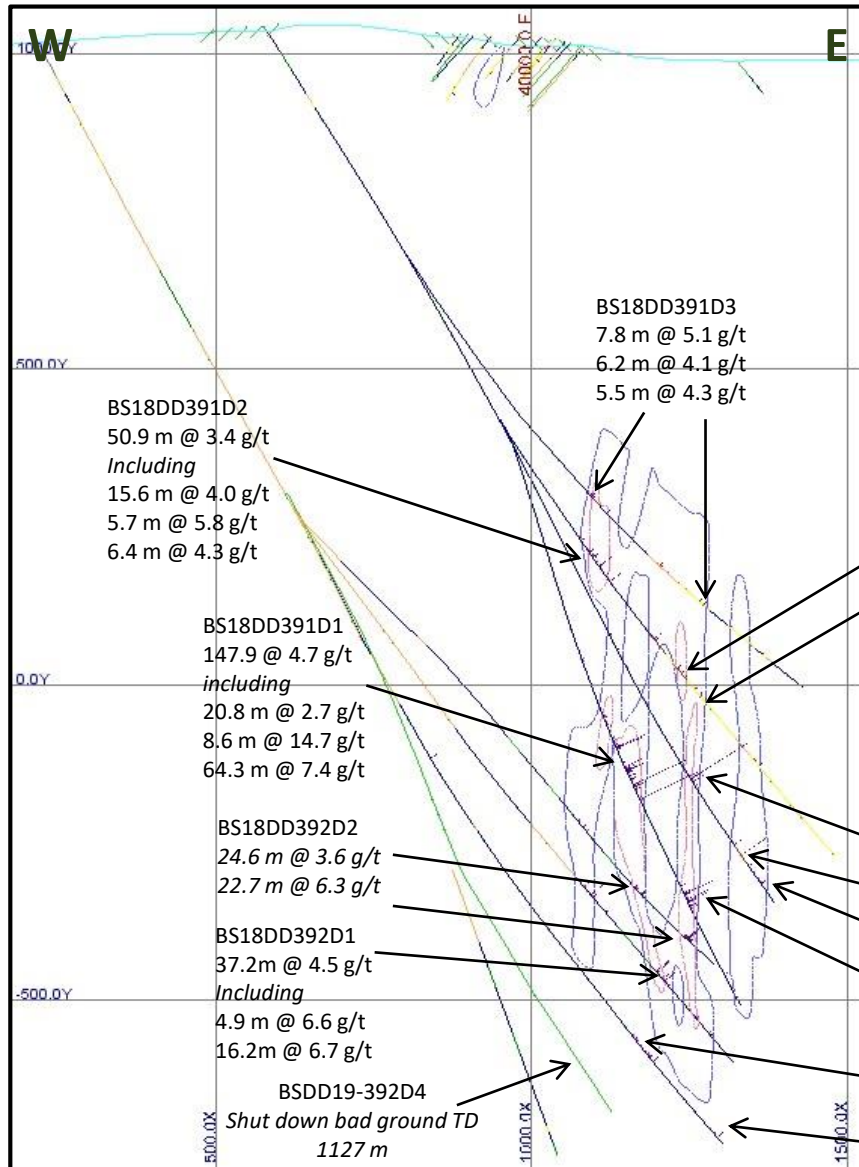 W
E
1000.0Y
40000.0 E
BS18DD391D3
7.8 m @ 5.1 g/t
6.2 m @ 4.1 g/t
5.5 m @ 4.3 g/t
500.0Y
BS18DD391D2
50.9 m @ 3.4 g/t
Including
15.6 m @ 4.0 g/t
5.7 m @ 5.8 g/t
6.4 m @ 4.3 g/t
BS18DD391D1
147.9 @ 4.7 g/t
including
20.8 m @ 2.7 g/t
8.6 m @ 14.7 g/t
64.3 m @ 7.4 g/t
0.0Y
BS18DD392D2
24.6 m @ 3.6 g/t
22.7 m @ 6.3 g/t
BS18DD392D1
37.2m @ 4.5 g/t
Including
4.9 m @ 6.6 g/t
16.2m @ 6.7 g/t
-500.0Y
BSDD19-392D4
Shut down bad ground TD
1127 m
500.0X
1000.0X
1500.0X